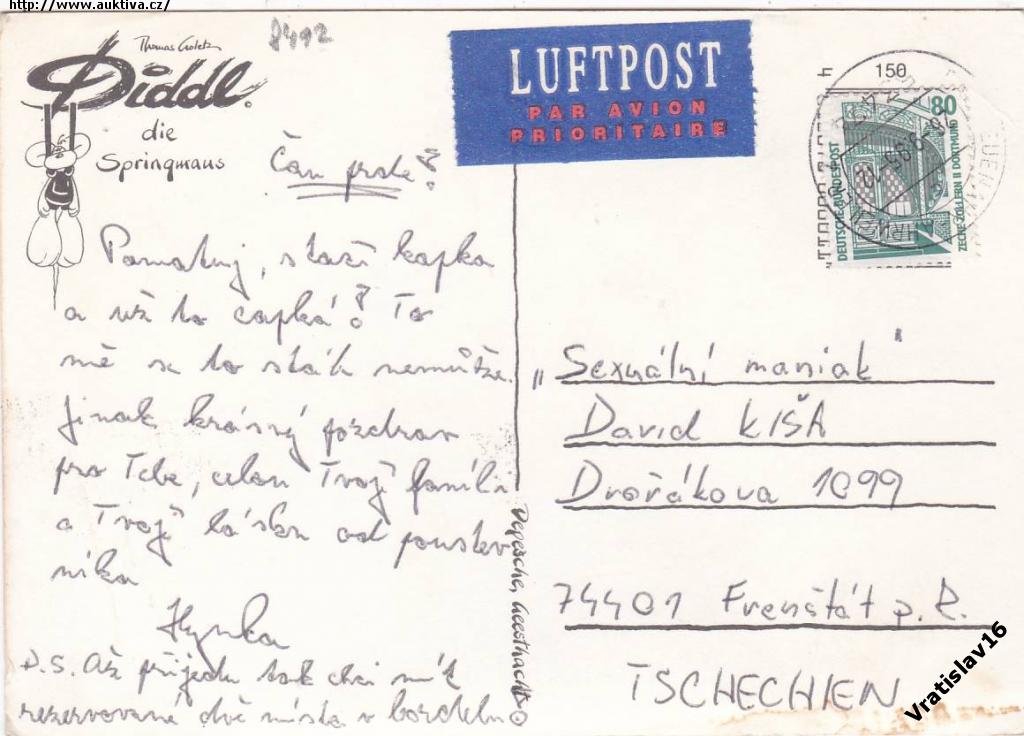 http://www.auktiva.cz/
8492
Thomas Goletz
Diddl.
die
Springmaus
LUFTPOST
PAR AVION
PRIORITAIRE
150
80
DEUTSCHE BUNDESPOST
ZECHE ZOLLERN II DORTMUND
Čau prde!
Pamatuj, stačí kapka
a už to čapká! To
mě se to stát nemůže.
Jinak krásný pozdrav
pro Tebe, celou Tvojí famíli
a Tvojí lásku od poustev
níka
Hynka
P.S. Až přijedu tak chci mít
rezervované dvě místa v bordelu
Depesche, Geesthacht
„Sexuální maniak"
David KIŠA
Dvořákova 1099
74401 Frenštát p. R.
TSCHECHIEN
Vratislav16